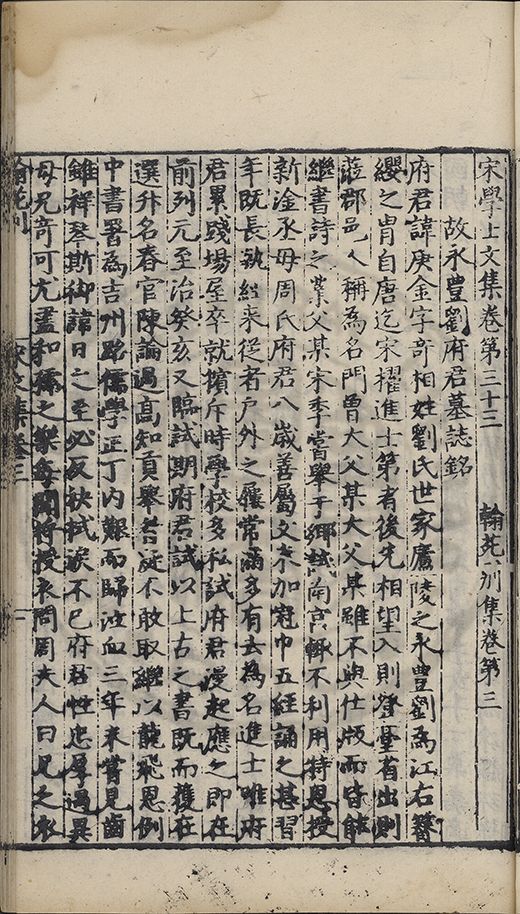 宋學士文集卷第三十三　翰苑別集卷第三
故永豐劉府君墓誌銘
府君諱庚金字奇相姓劉氏世家廬陵之永豐劉為江右簪
纓之胄自唐迄宋擢進士第者後先相望入則登臺省出則
蒞郡邑人稱為名門曾大父某大父某雖不與仕版而皆能
繼書詩之業父某宋季嘗舉于鄉試南宮輒不利用特恩授
新淦丞母周氏府君八歲善屬文未加冠巾五經誦之甚習
年既長執經来從者戶外之屨常滿多有去為名進士唯府
君累踐場屋卒就擯斥時學校多私試府君漫起應之即在
前列元至治癸亥又臨試期府君試以上古之書既而獲在
選升名春官陳論過高知貢舉者涎不敢取繼以龍飛恩例
中書署為吉州路儒學正丁内艱而歸泣血三年未嘗見齒
雖祥琴斯御諱日之至必反袂拭淚不已府君性忠厚過異
母兄奇可尤盡和孺之樂每聞將授衣問周夫人曰兄之衣